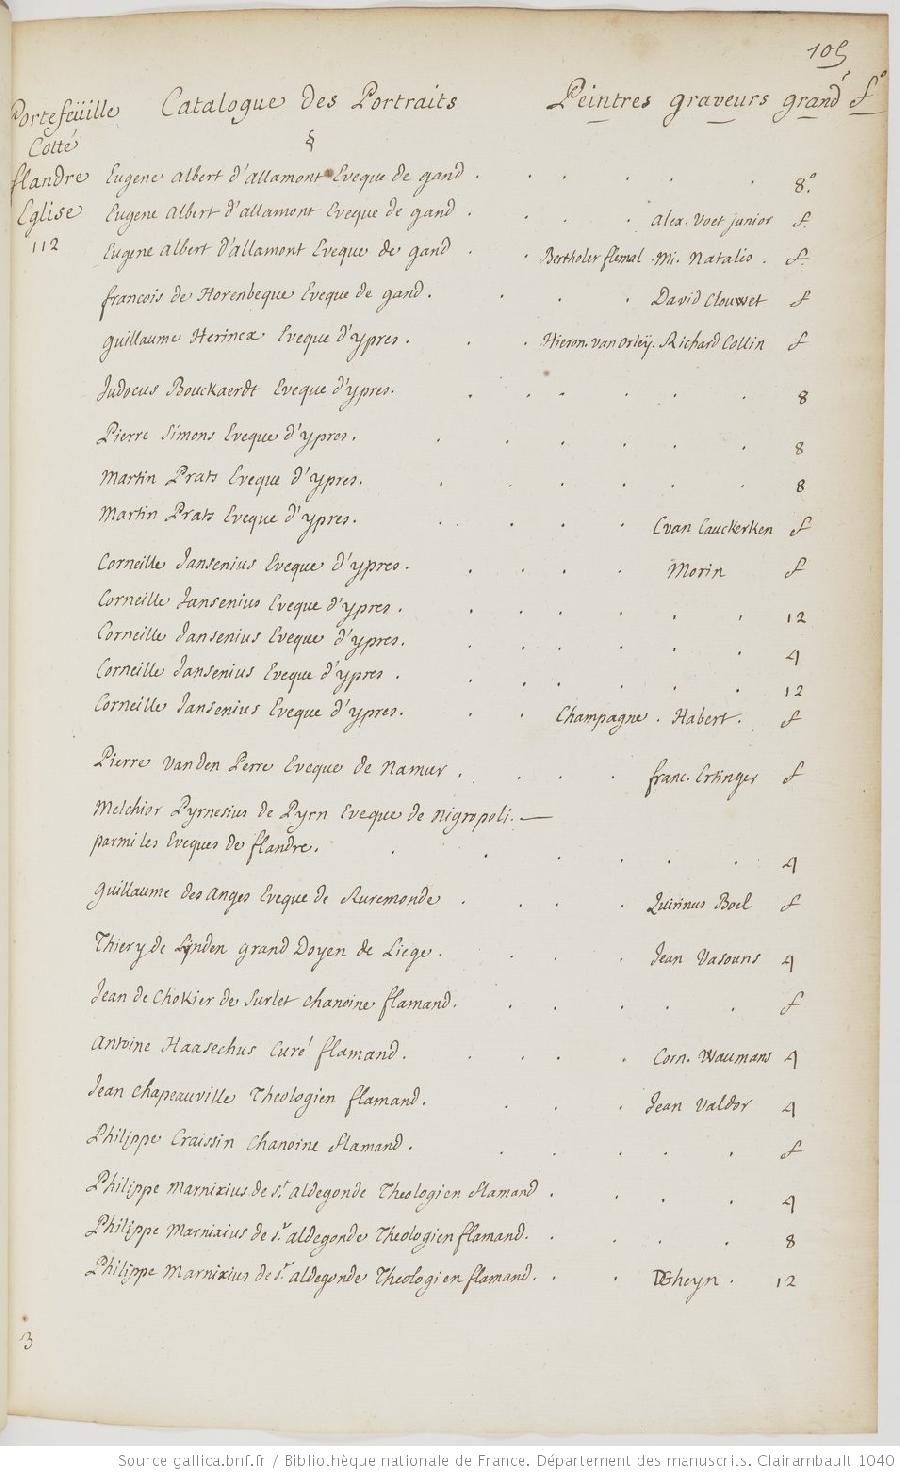 105
Portefeüille Catalogue des Portraits Peintres graveurs grandr fo
Cotté §
flandre Eugene Albert d'allamont Eveque de gand . . . . . . 8.o
Eglise Eugene Albert d'allamont Eveque de gand . . . . Alex. Voet junior f.
112 Eugene Albert d'allamont Eveque de gand . . Bertholet flemal . Mi. Natalis . f.
francois de Horenbeque Eveque de gand . . . . David Clouwet f
guillaume Herincx Eveque d'ypres . . . Hieron. van Orley . Richard Collin f
Judocus Bouckaerdt Eveque d'ypres . . . . . . . 8
Pierre Simons Eveque d'ypres . . . . . . . 8
Martin Prats Eveque d'ypres . . . . . . 8
Martin Prats Eveque d'ypres . . . . . C van Cauckerken f
Corneille Jansenius Eveque d'ypres . . . . . Morin f
Corneille Jansenius Eveque d'ypres . . . . . . . 12
Corneille Jansenius Eveque d'ypres . . . . . . . 4
Corneille Jansenius Eveque d'ypres . . . . . . . 12
Corneille Jansenius Eveque d'ypres . . . Champagne . Habert . f
Pierre vanden Perre Eveque de Namur . . . . franc. Ertinger f
Melchior Pyrnesius de Pyrn Eveque de nigropoli . —
parmi les Eveques de flandre . . . . . . . 4
guillaume des Anges Eveque de Ruremonde . . . . Quirinus Boel f
Thiery de Lÿnden grand Doyen de Liege . . . . Jean Vasouns 4
Jean de Chokier de Surlet chanoine flamand . . . . . . f
Antoine Haasechus Curé flamand . . . . . Corn. Waumans 4
Jean Chapeauville Theologien flamand . . . . Jean Valdor 4
Philippe Craissin Chanoine flamand . . . . . . f
Philippe Marnixius de st aldegonde Theologien flamand . . . . 4
Philippe Marnixius de st aldegonde Theologien flamand . . . . . 8
Philippe Marnixius de st aldegonde Theologien flamand . . . DGheyn . 12
3
Source gallica.bnf.fr / Bibliothèque nationale de France. Département des manuscrits. Clairambault 1040